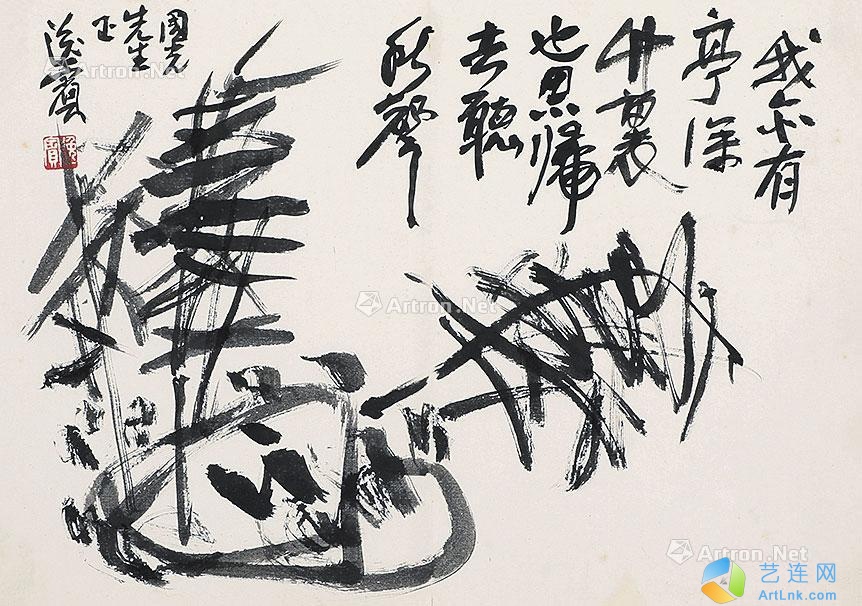 我亦有
亭深
竹裏
也思歸
去聽
秋聲
先生
正
Artron.Net
Artron.Net
Artron.Net
Artron.Net
艺连网
ArtLnk.com